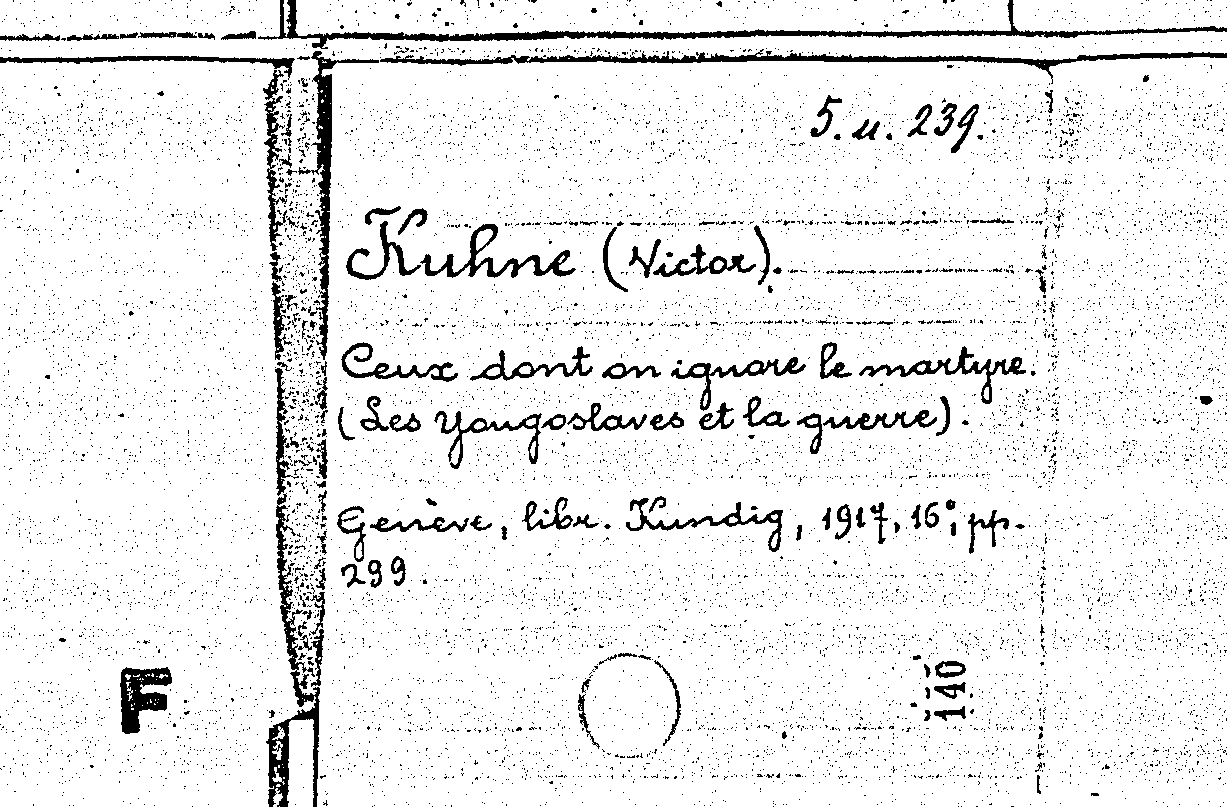 5. u. 239.
Kuhne (Victor).
Ceux dont on ignore le martyre.
(Les Yougoslaves et la guerre).
Genève, libr. Kundig, 1917, 16°, pp.
299.
F
140